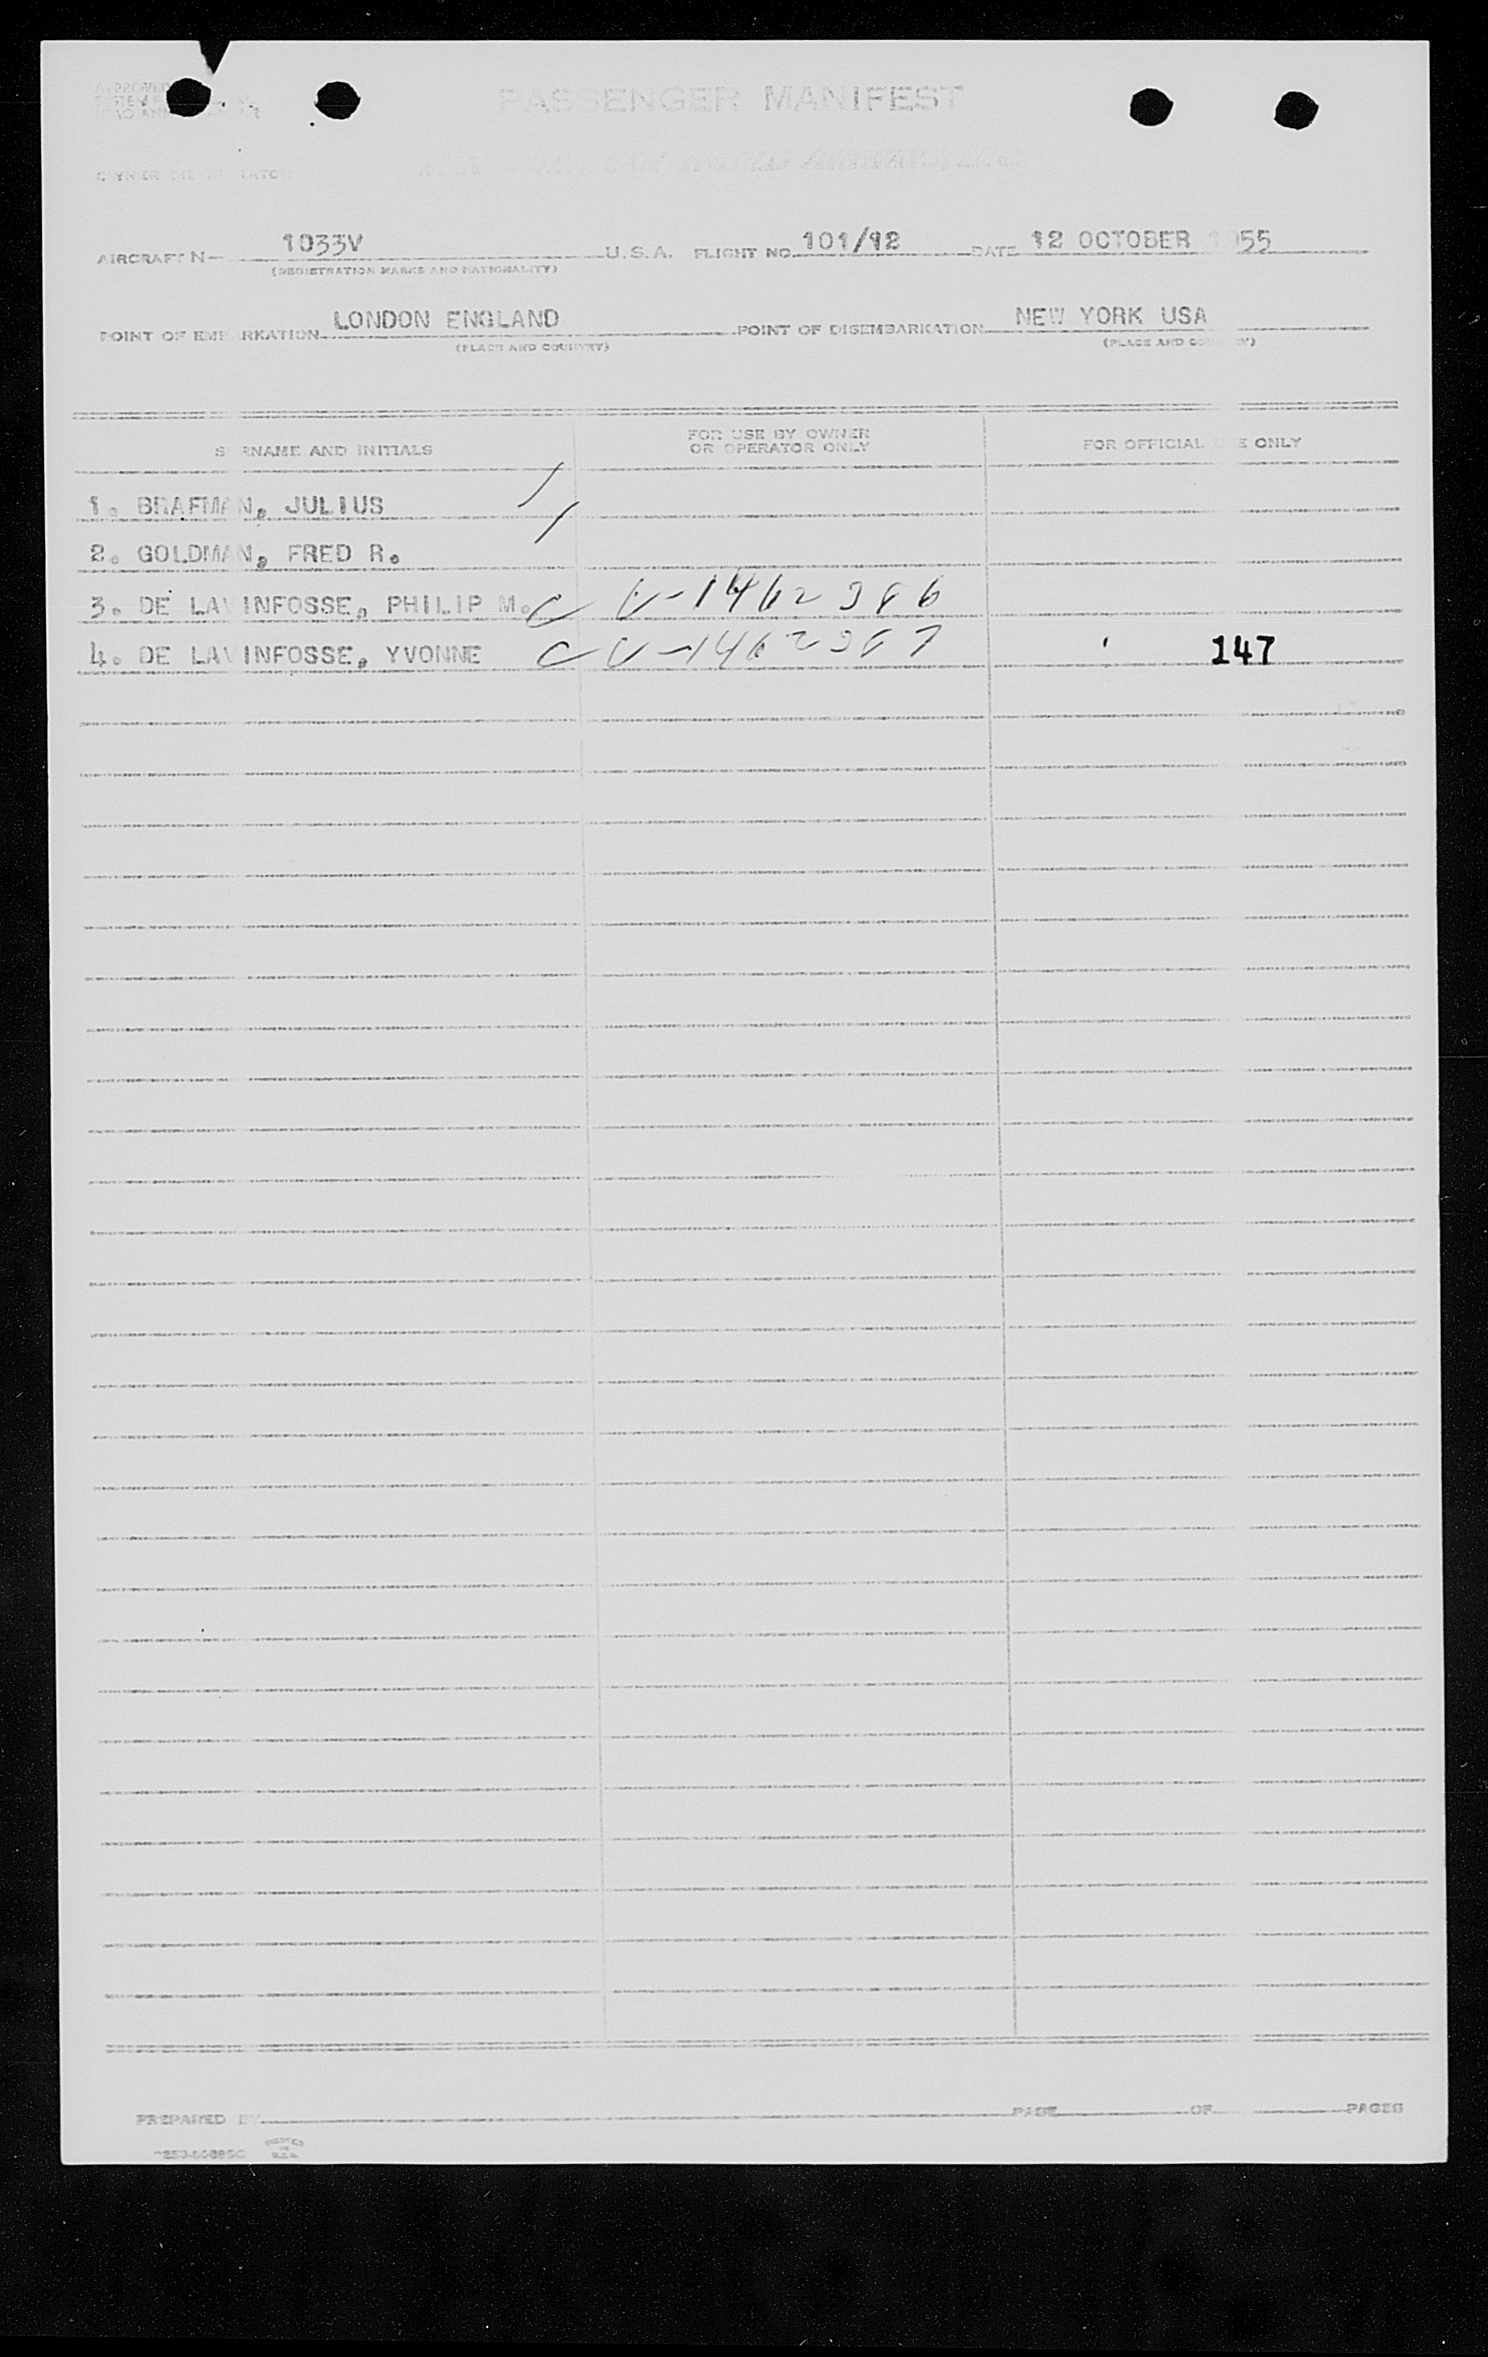 PASSENGER MANIFEST
AIRCRAFT N- 1033V U.S.A. FLIGHT NO. 101/12 DATE 12 OCTOBER 1955
(REGISTRATION MARKS AND NATIONALITY)
POINT OF EMBARKATION LONDON ENGLAND POINT OF DISEMBARKATION NEW YORK USA
(PLACE AND COUNTRY) (PLACE AND COUNTRY)
SURNAME AND INITIALS FOR USE BY OWNER OR OPERATOR ONLY FOR OFFICIAL USE ONLY
1. BRAFMAN, JULIUS
2. GOLDMAN, FRED R.
3. DE LAVINFOSSE, PHILIP M. C V-1462386
4. DE LAVINFOSSE, YVONNE C V-1462387 147
PREPARED BY PAGE OF PAGES
PRINTED IN U.S.A.